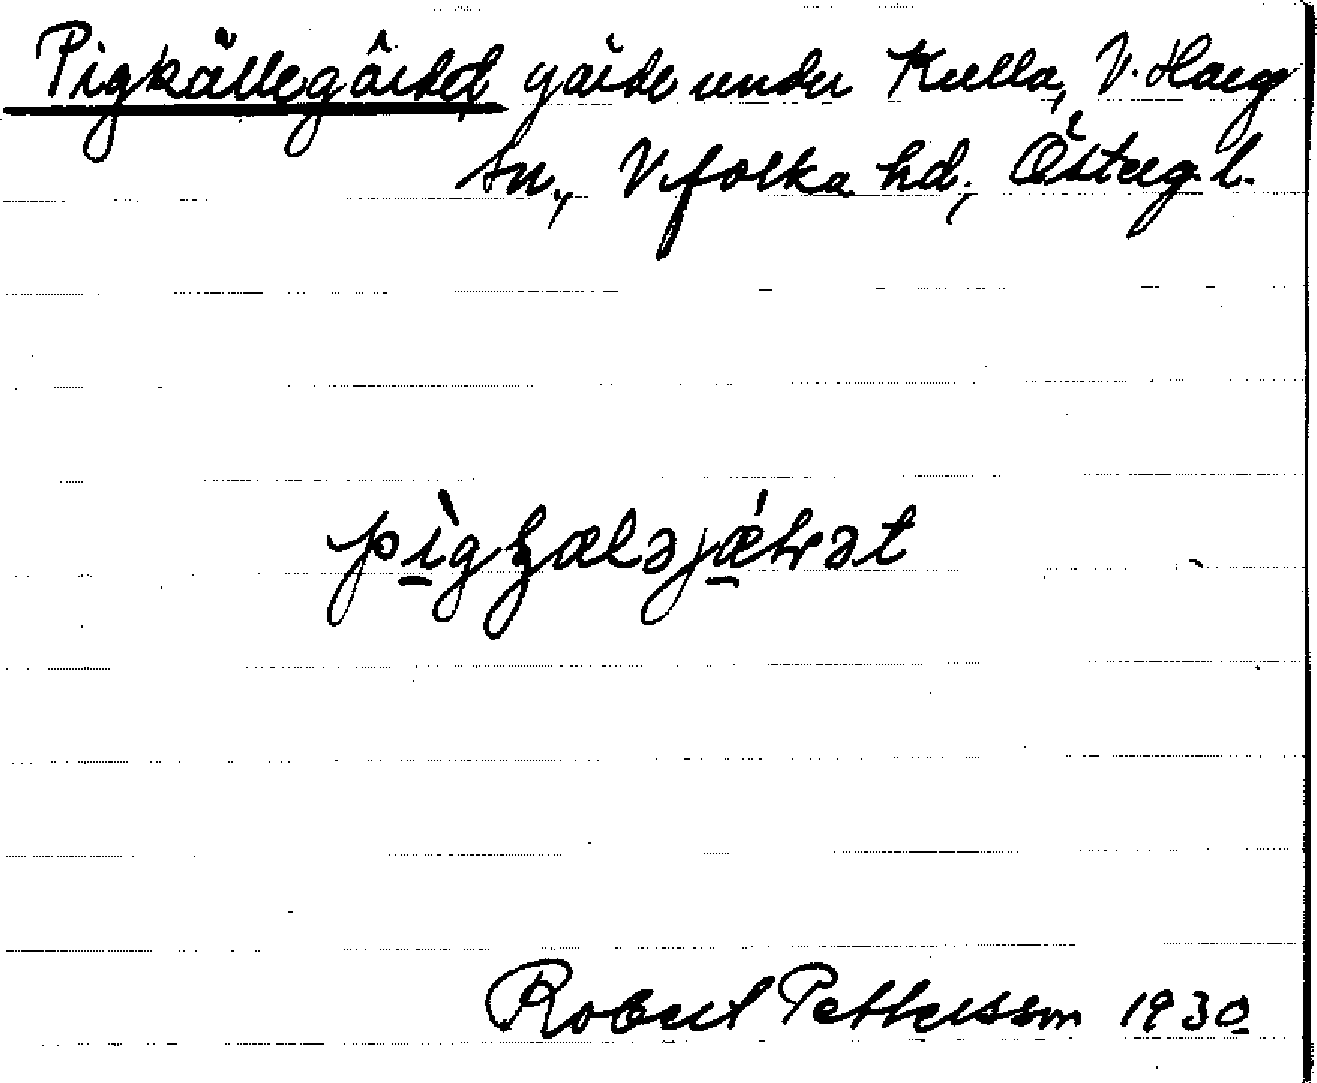 Pigkällegärdet gärde under Kulla, V. Harg
sn., Vifolka hd., Österg. l.
pìgȥæləjǽṭət
Robert Pettersson 1930